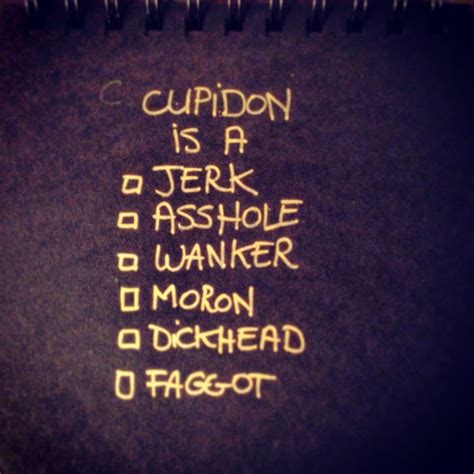 CUPiDON
iS A
JERK
ASSHOLE
WANKER
MORON
DiCKHEAD
FAGGOT